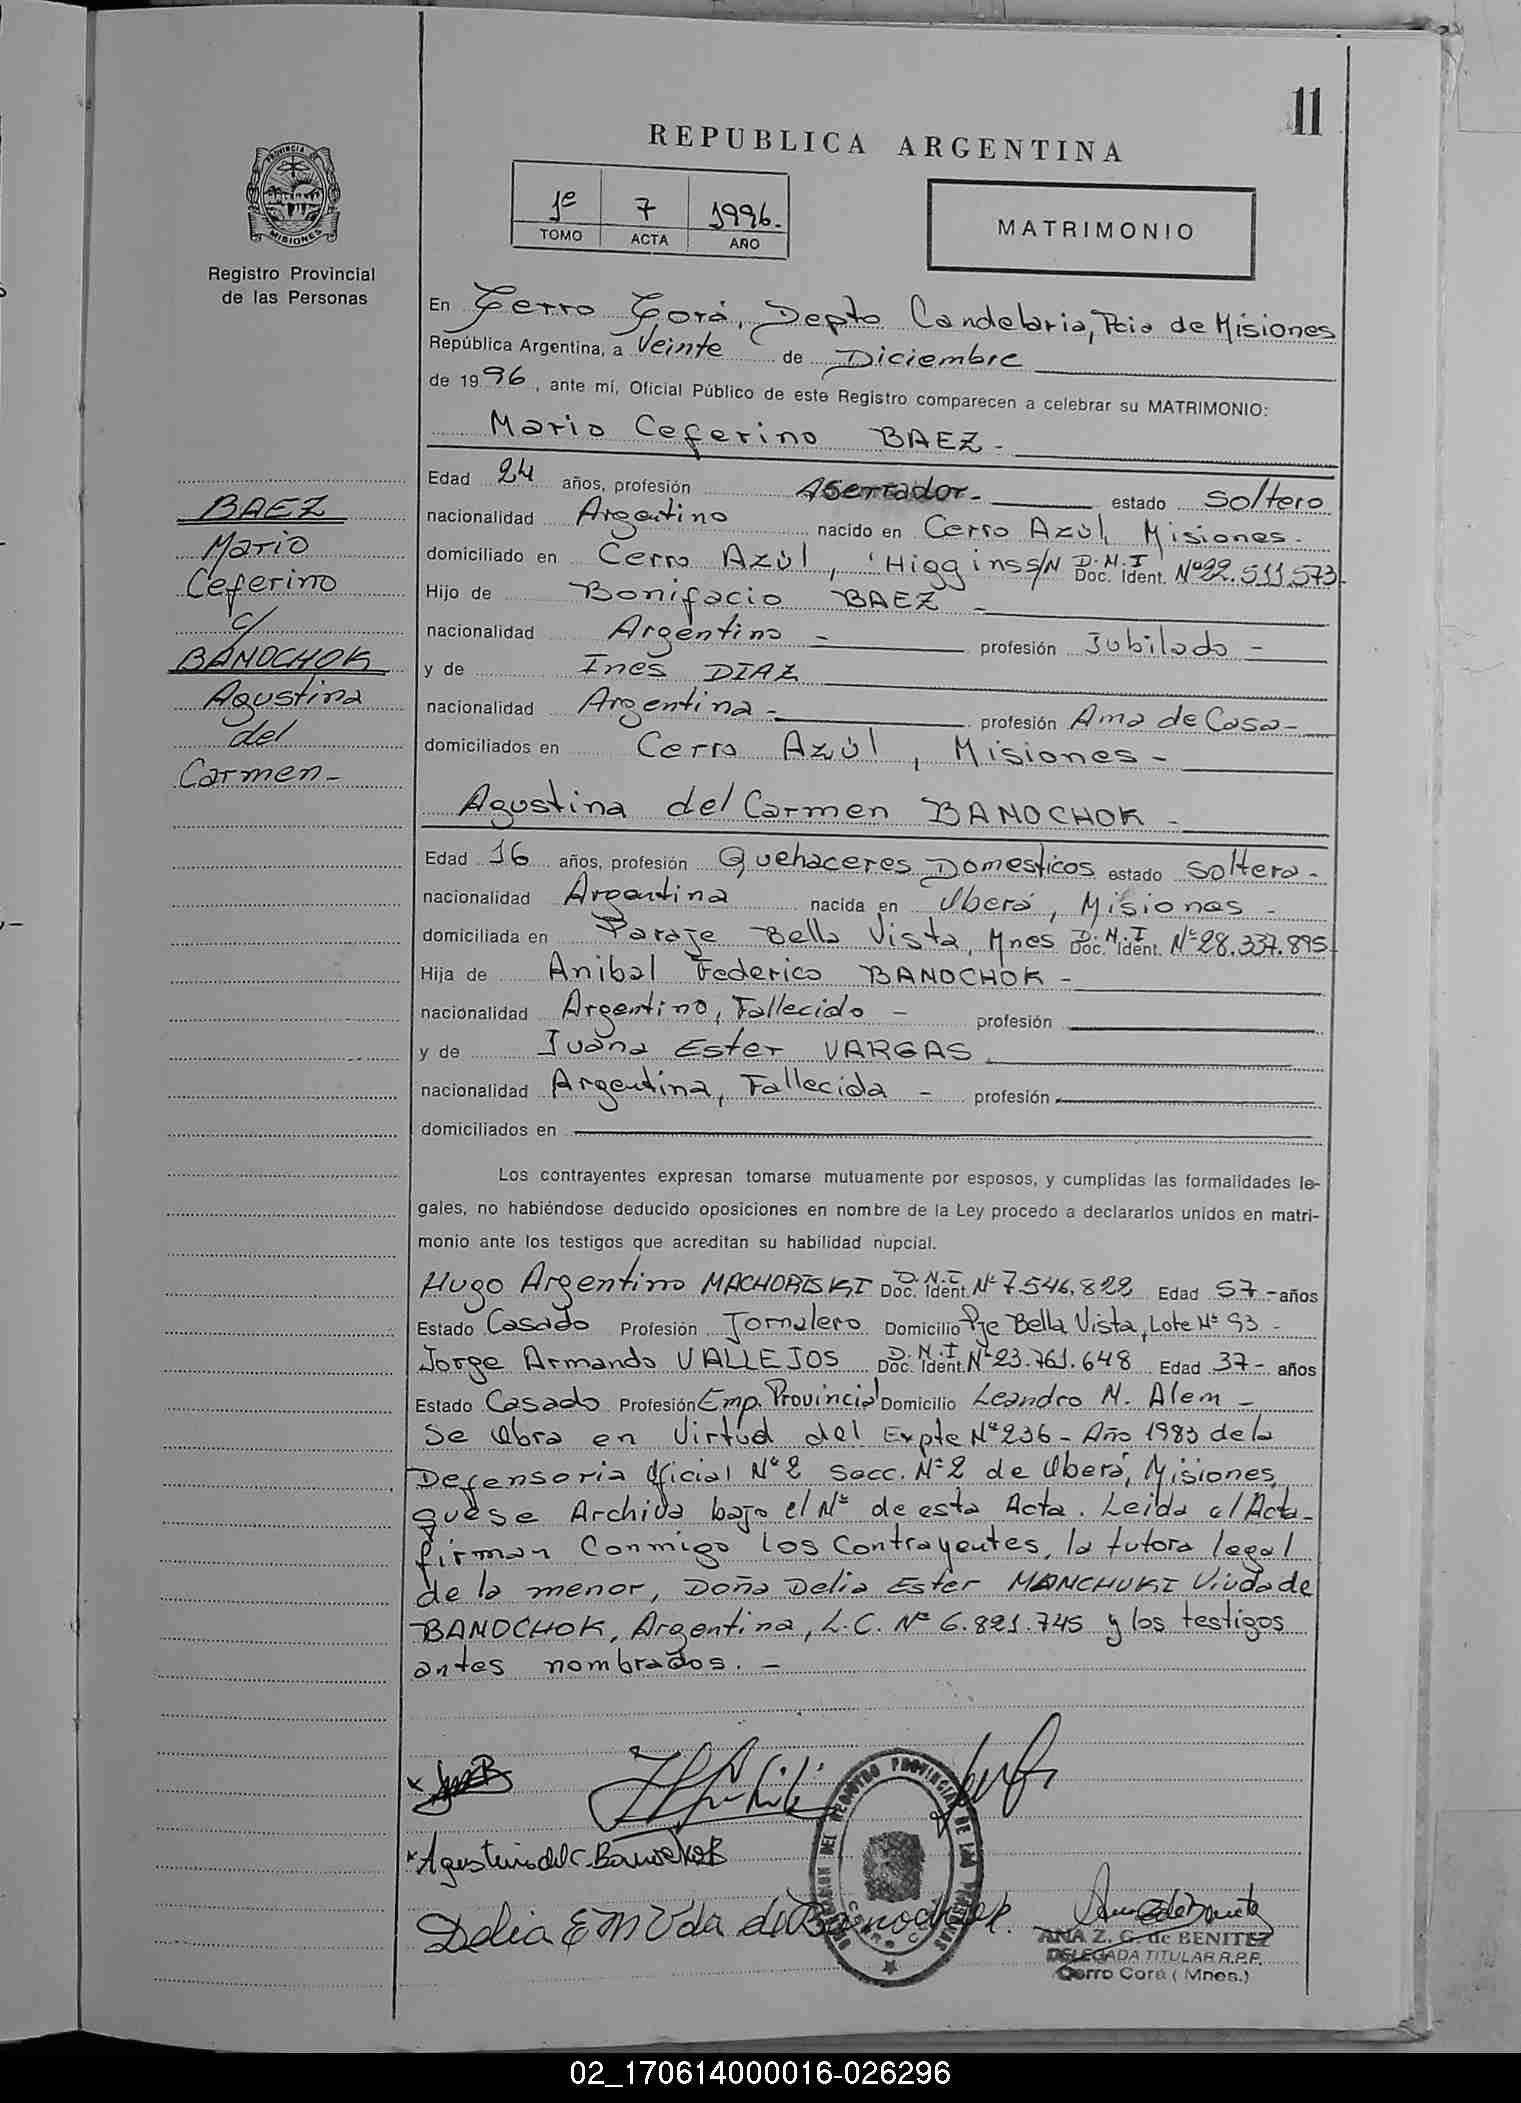 11
REPUBLICA ARGENTINA
PROVINCIA DE
MISIONES
Registro Provincial
de las Personas
1º 7 1996.
TOMO ACTA AÑO
MATRIMONIO
En Cerro Corá, Depto Candelaria, Pcia de Misiones
República Argentina, a Veinte de Diciembre
de 1996, ante mí, Oficial Público de este Registro comparecen a celebrar su MATRIMONIO:
Mario Ceferino BAEZ -
Edad 24 años, profesión Aserrador - estado Soltero
nacionalidad Argentino nacido en Cerro Azúl, Misiones -
domiciliado en Cerro Azúl, 'Higgins S/N D.N.I Doc. Ident. Nº 22.511.573-
Hijo de Bonifacio BAEZ -
nacionalidad Argentino - profesión Jubilado -
y de Ines DIAZ
nacionalidad Argentina - profesión Ama de Casa -
domiciliados en Cerro Azúl, Misiones -
BAEZ
Mario
Ceferino
c/
BANOCHOK
Agustina
del
Carmen -
Agustina del Carmen BANOCHOK -
Edad 16 años, profesión Quehaceres Domesticos estado Soltera -
nacionalidad Argentina nacida en Oberá, Misiones -
domiciliada en Paraje Bella Vista, Mnes D.N.I Doc. Ident. Nº 28.337.895-
Hija de Anibal Federico BANOCHOK -
nacionalidad Argentino, Fallecido - profesión
y de Juana Ester VARGAS
nacionalidad Argentina, Fallecida - profesión
domiciliados en
Los contrayentes expresan tomarse mutuamente por esposos, y cumplidas las formalidades le-
gales, no habiéndose deducido oposiciones en nombre de la Ley procedo a declararlos unidos en matri-
monio ante los testigos que acreditan su habilidad nupcial.
Hugo Argentino MACHORISKI D.N.I Doc. Ident. Nº 7.546.822 Edad 57 - años
Estado Casado Profesión Jornalero Domicilio Pje Bella Vista, Lote Nº 93 -
Jorge Armando VALLEJOS D.N.I Doc. Ident. Nº 23.761.648 Edad 37 - años
Estado Casado Profesión Emp. Provincial Domicilio Leandro N. Alem -
Se Obra en Virtud del Expte Nº 236 - Año 1983 de la
Defensoria Oficial Nº 2 Secc. Nº 2 de Oberá, Misiones,
que se Archiva bajo el Nº de esta Acta. Leida el Acta -
firman Conmigo los Contrayentes, la tutora legal
de la menor, Doña Delia Ester MANCHUKI Viuda de
BANOCHOK, Argentina, L.C. Nº 6.821.745 y los testigos
antes nombrados. -
x
x Agustina del C. Banochok
Delia E M Vda de Banochok.
DEL REGISTRO PROVINCIAL DE LAS PERSONAS
ANA Z. G. de BENITEZ
DELEGADA TITULAR R.P.P.
Cerro Corá (Mnes.)
02_170614000016-026296